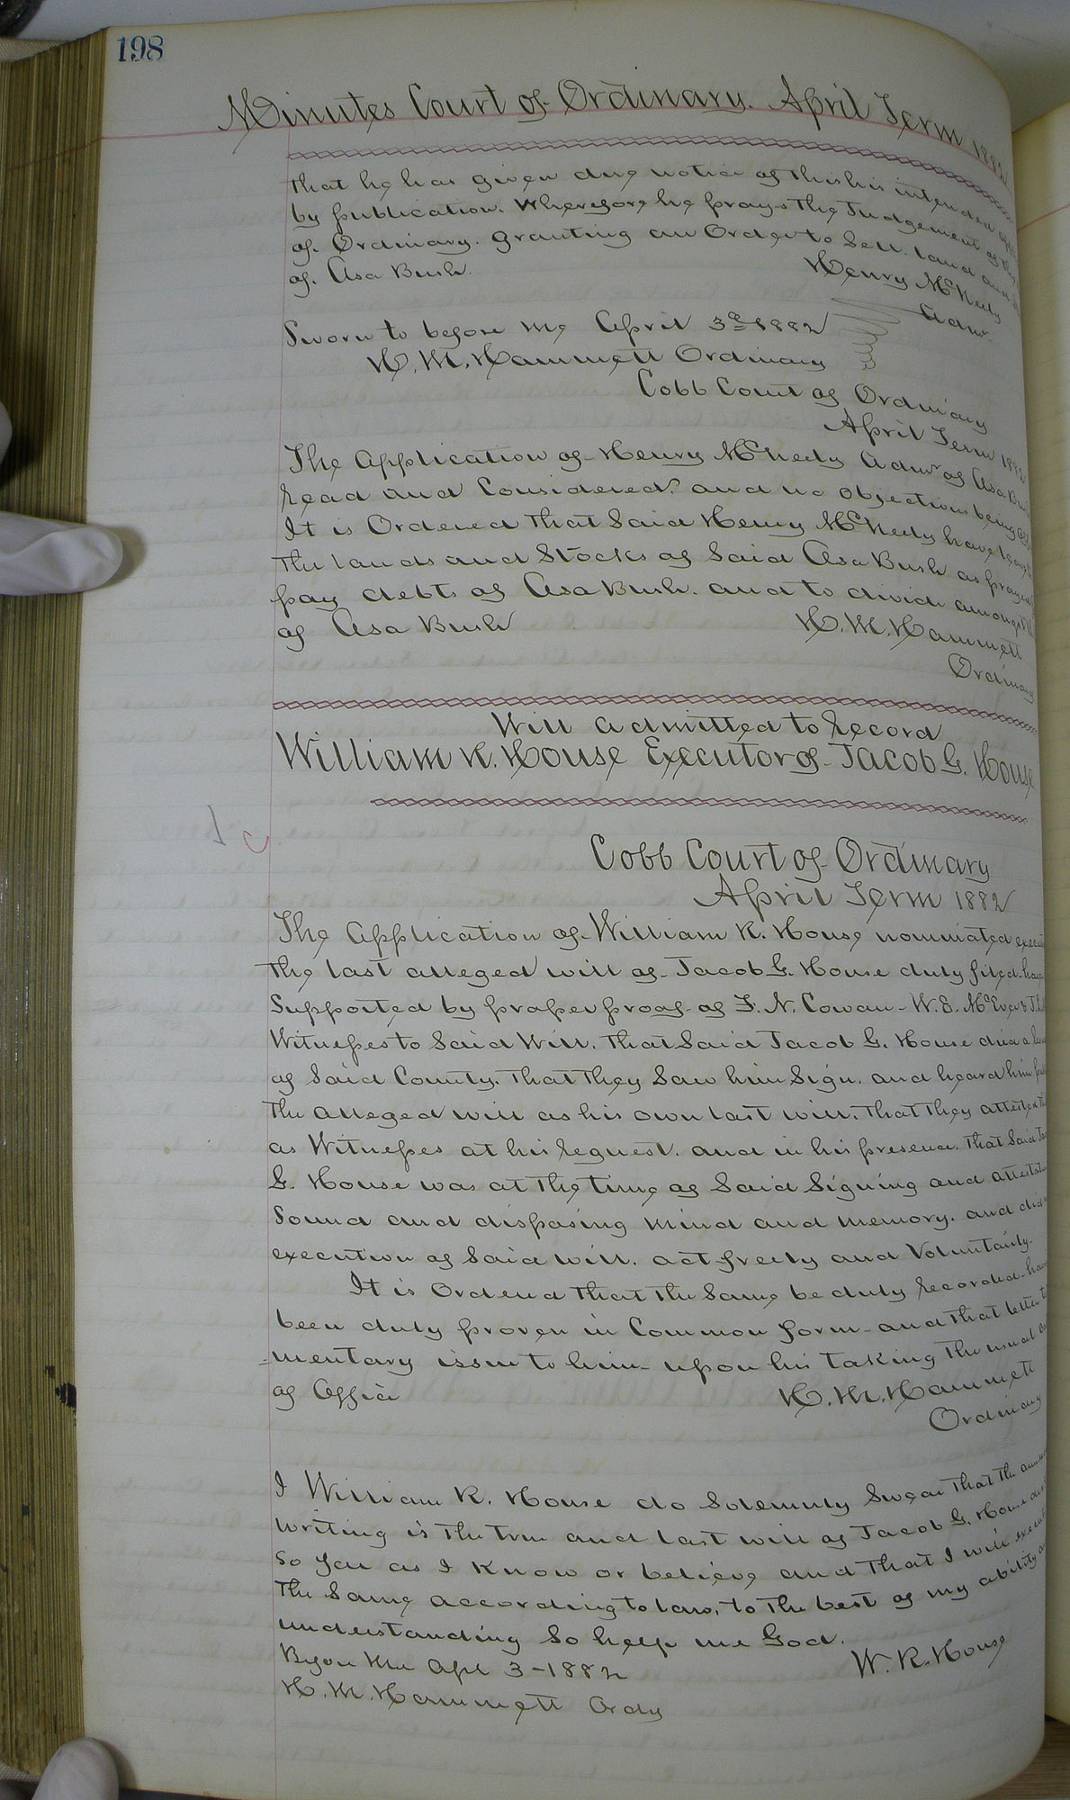 198
Minutes Court of Ordinary. April Term 1882
that he has given due notice of this his intended
by publication. Wherefore he prays the Judgement of
of Ordinary. granting an Order to Sell land and
of Asa Bush.
Henry McNeely
Admr
Sworn to before me April 3rd 1882
H. M. Hammett Ordinary
Cobb Court of Ordinary
April Term 1882
The Application of Henry McNeely Admr of Asa Bush
Read and Considered. and no objections being
It is Ordered that Said Henry McNeely have
the lands and Stocks of Said Asa Bush as prayed
pay debts of Asa Bush. and to divide amongst
of Asa Bush
H. M. Hammett
Ordinary
Will admitted to Record
William R. House Executor of Jacob G. House
Cobb Court of Ordinary
April Term 1882
The Application of William R. House nominated
the last alleged will of Jacob G. House duly filed
Supported by proper proof of F. N. Cowan - W. E.
Witnesses to Said Will. that Said Jacob G. House died a
of Said County. that they Saw him Sign. and heard him
the alleged will as his own last will. that they attested
as Witnesses at his request. and in his presence. that Said
G. House was at the time of Said Signing and
Sound and disposing mind and memory. and did
execution of Said will. act freely and Voluntarily.
It is Ordered that the Same be duly Recorded
been duly proven in Common form - and that letters
-mentary issue to him - upon his taking the usual
of Office
H. M. Hammett
Ordinary
I William R. House do Solemnly Swear that the
writing is the true and last will of Jacob G. House
So far as I know or believe and that I will
the Same according to law, to the best of my ability
understanding So help me God.
Before me Apl 3 - 1882
W. R. House
H. M. Hammett Ordy